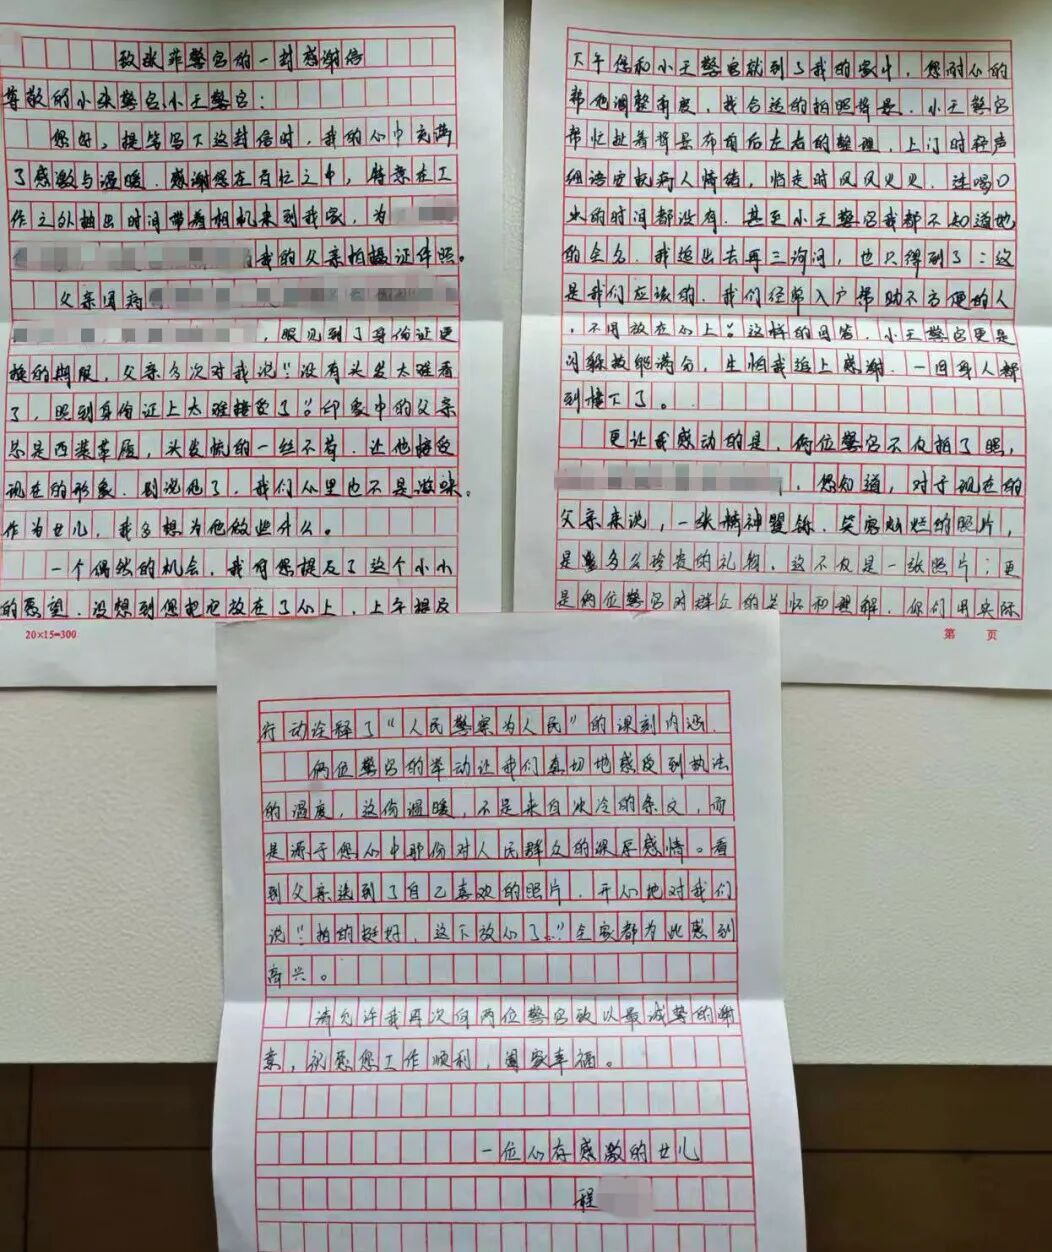 致张菲警官的一封感谢信
尊敬的小张警官、小王警官：
您好，提笔写下这封信时，我的心中充满
了感激与温暖．感谢您在百忙之中，特意在工
作之外抽出时间带着相机来到我家，为
的我的父亲拍摄证件照。
父亲因病
，眼见到了身份证更
换的期限，父亲多次对我说“没有头发太难看
了，照到身份证上太难接受了”印象中的父亲
总是西装革履，头发梳的一丝不苟．让他接受
现在的形象．别说他了，我们心里也不是滋味。
作为女儿，我多想为他做些什么。
一个偶然的机会，我向您提及了这个小小
的愿望．没想到您把它放在了心上，上午提及
20×15=300
下午您和小王警官就到了我的家中，您耐心的
帮他调整角度，找合适的拍照背景．小王警官
帮忙扯着背景布前后左右的整理，上门时轻声
细语安抚病人情绪，临走时风风火火．连喝口
水的时间都没有．甚至小王警官我都不知道她
的全名．我追出去再三询问，也只得到了：这
是我们应该的．我们经常入户帮助不方便的人
，不用放在心上”这样的回答．小王警官更是
闪躲技能满分，生怕我追上感谢．一回身人都
到楼下了。
更让我感动的是，俩位警官不仅拍了照，
，您知道，对于现在的
父亲来说，一张精神矍铄、笑容灿烂的照片，
是多么珍贵的礼物．这不仅是一张照片；更
是俩位警官对群众的关怀和理解．你们用实际
第 页
行动诠释了“人民警察为人民”的深刻内涵．
俩位警官的举动让我们真切地感受到执法
的温度，这份温暖，不是来自冰冷的条文，而
是源于您心中那份对人民群众的深厚感情。看
到父亲选到了自己喜欢的照片．开心地对我们
说“拍的挺好，这下放心了。”全家都为此感到
高兴。
请允许我再次向两位警官致以最诚挚的谢
意，祝愿您工作顺利，阖家幸福。
一位心存感激的女儿
程